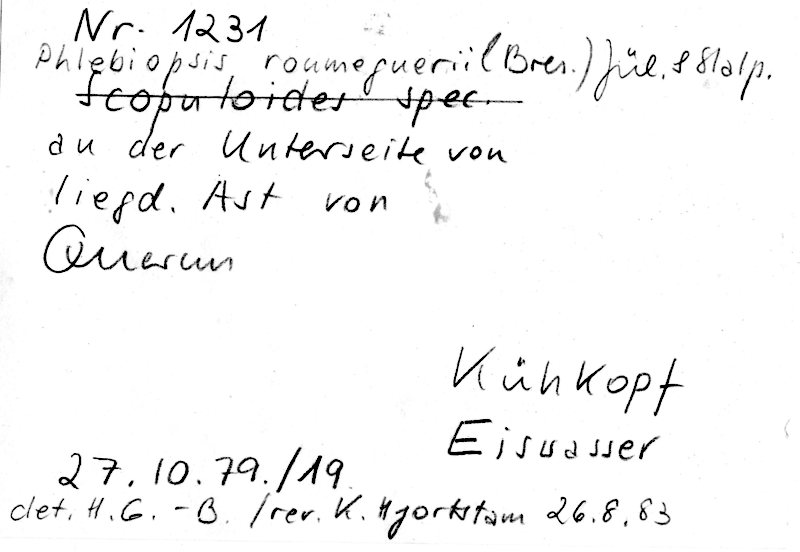 Nr. 1231
Phlebiopsis roumeguerii (Bres.) Jül. & Stalp.
Scopuloides spec.
an der Unterseite von
liegd. Ast von
Quercus
Kühkopf
Eiswasser
27.10.79./19
det. H.G.-B. /rev. K. Hjortstam 26.8.83